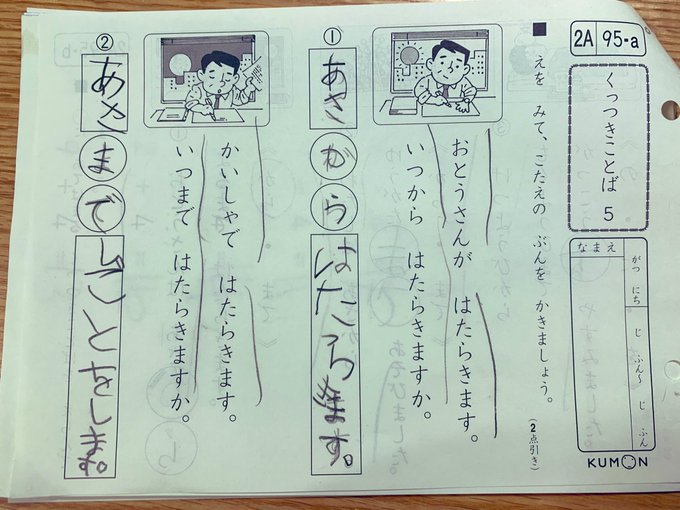 2A 95-a
くっつきことば 5
なまえ
がつ にち
じ ふん〜 じ ふん
KUMON
■ えを みて、こたえの ぶんを かきましょう。
(2点引き)
おとうさんが はたらきます。
いつから はたらきますか。
① あさ から はたらきます。
かいしゃで はたらきます。
いつまで はたらきますか。
② あさ まで しごとをします。